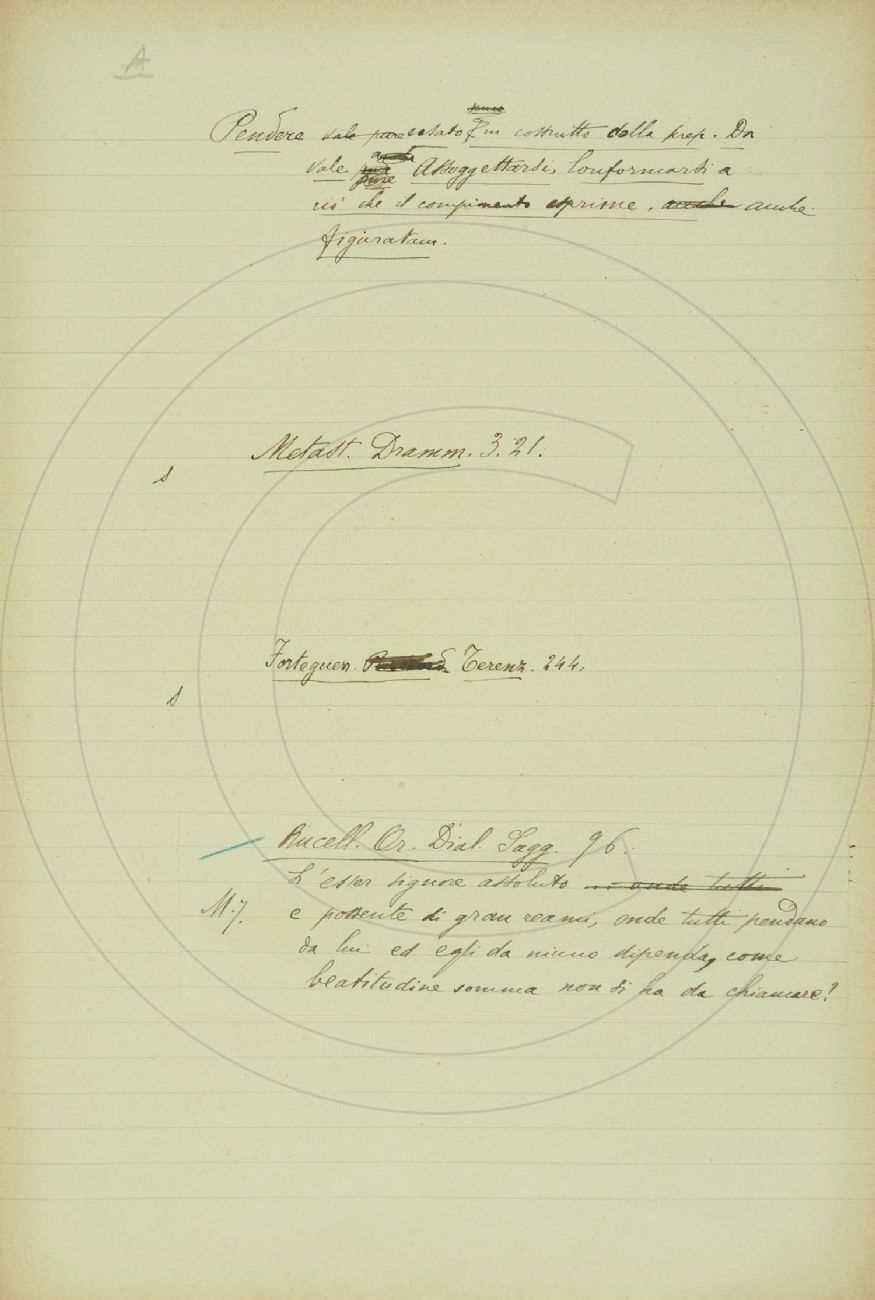 A
pure
Pendere vale pure usato in costrutto della prep. Da
anche
vale pure Assoggettarsi, Conformarsi a
ciò che il compimento esprime, anche anche
figuratam.
Metast. Dramm. 3. 21.
s
Forteguer. Terenz. 244.
s
Rucell. Or. Dial. Sagg. 96.
L'esser signore assoluto ... onde tutti
M. 7. e possente di gran reami, onde tutti pendano
da lui ed egli da niuno dipenda, come
beatitudine somma non si ha da chiamare?